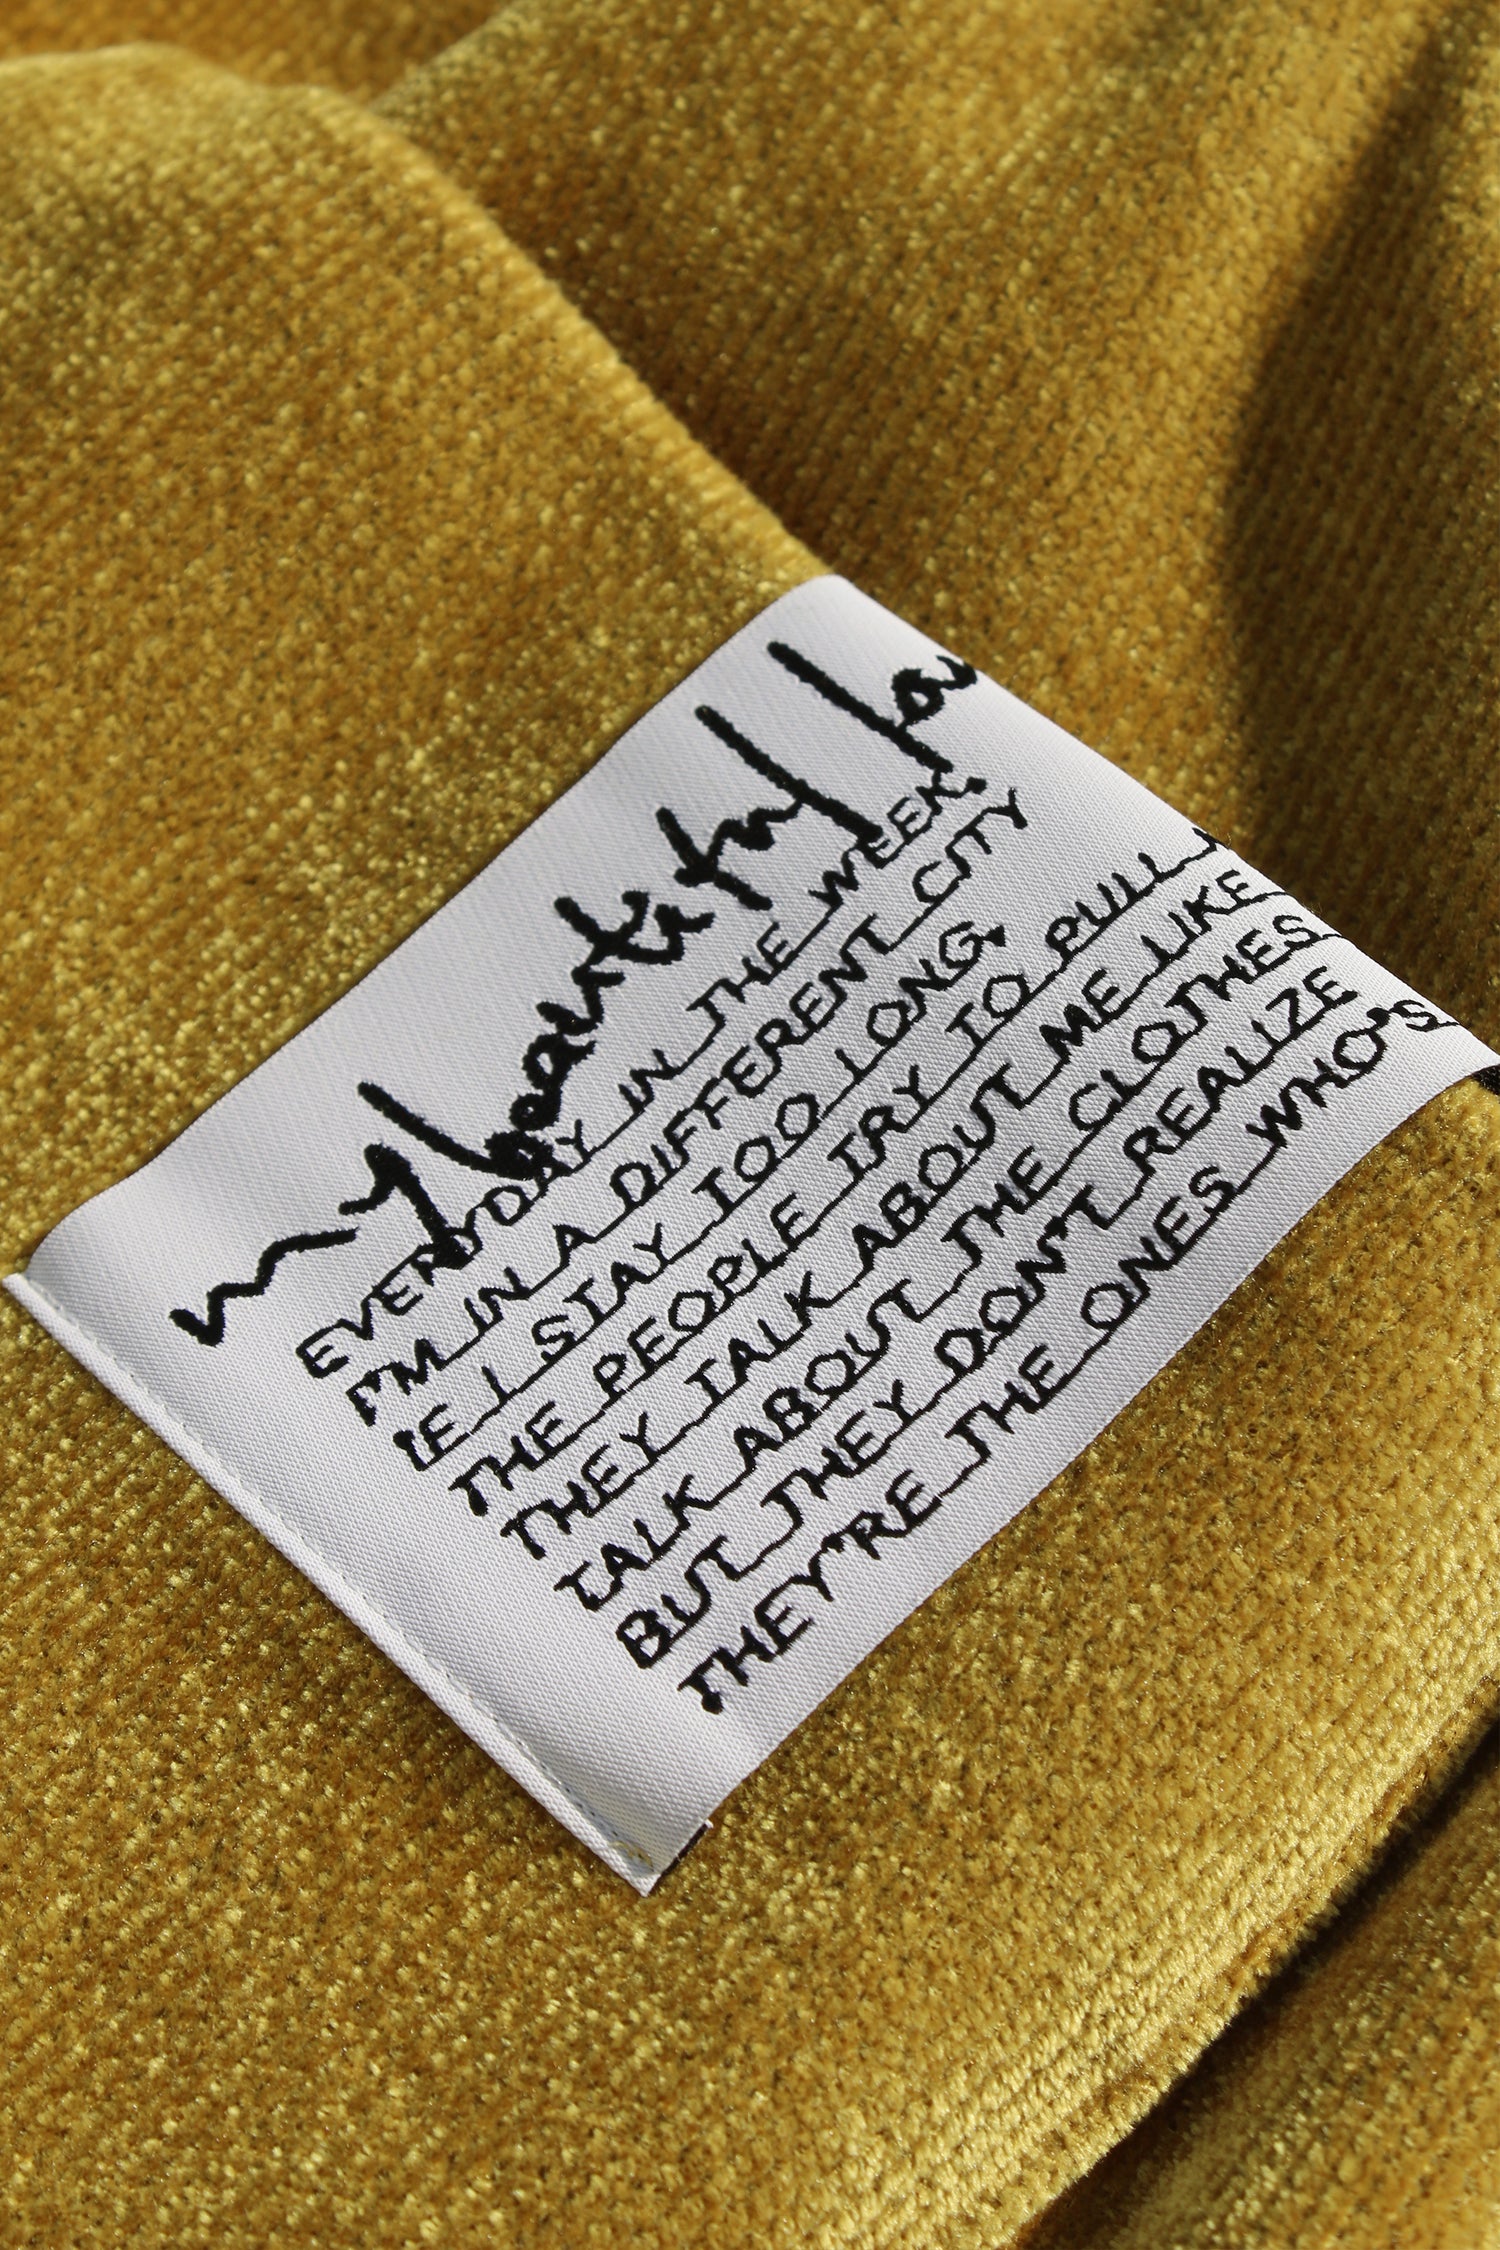 my beautiful
EVERYDAY IN THE WEEK.
I'M IN A DIFFERENT CITY
IF I STAY TOO LONG,
THE PEOPLE TRY TO PULL
THEY TALK ABOUT ME LIKE
TALK ABOUT THE CLOTHES
BUT THEY DON'T REALIZE
THEY'RE THE ONES WHO'S